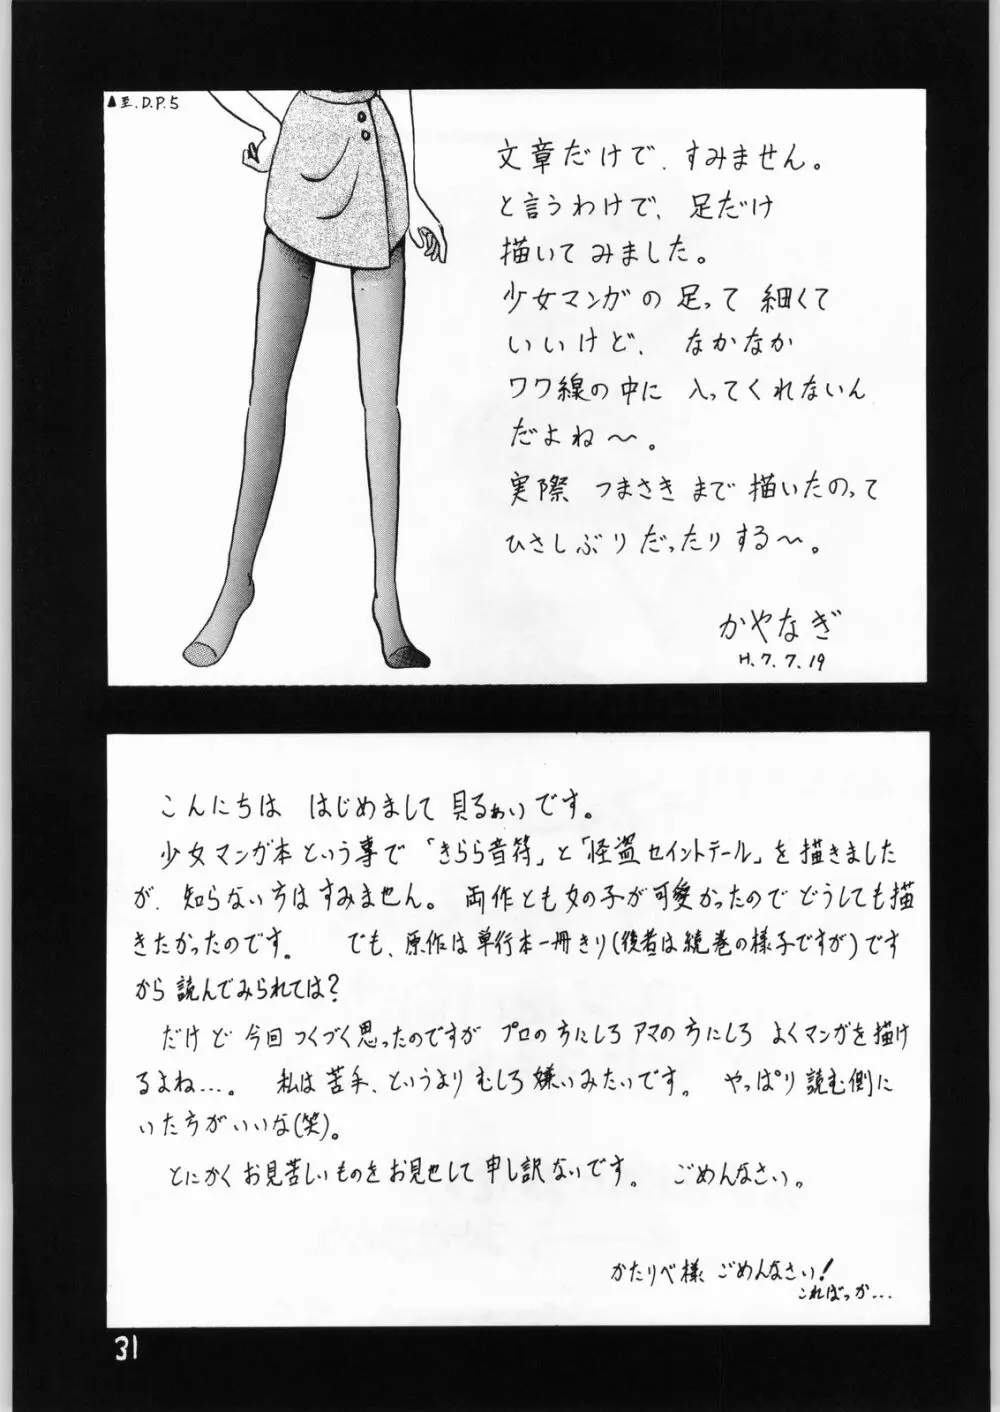 ▲至.D.P.5
文章だけで、すみません。
と言うわけで、足だけ
描いてみました。
少女マンガの足って細くて
いいけど、なかなか
ワク線の中に入ってくれないん
だよね〜。
実際つまさきまで描いたのって
ひさしぶりだったりする〜。
かやなぎ
H.7.7.19
こんにちは はじめまして 貝るぁいです。
少女マンガ本という事で「きらら音符」と「怪盗セイントテール」を描きました
が、知らない方はすみません。両作とも女の子が可愛かったのでどうしても描
きたかったのです。 でも、原作は単行本一冊きり(後者は続巻の様子ですが)です
から読んでみられては?
だけど今回つくづく思ったのですがプロの方にしろアマの方にしろよくマンガを描け
るよね…。 私は苦手、というよりむしろ嫌いみたいです。 やっぱり読む側に
いた方がいいな(笑)。
とにかくお見苦しいものをお見せして申し訳ないです。 ごめんなさい。
かたりべ様、ごめんなさい!
こればっか…
31